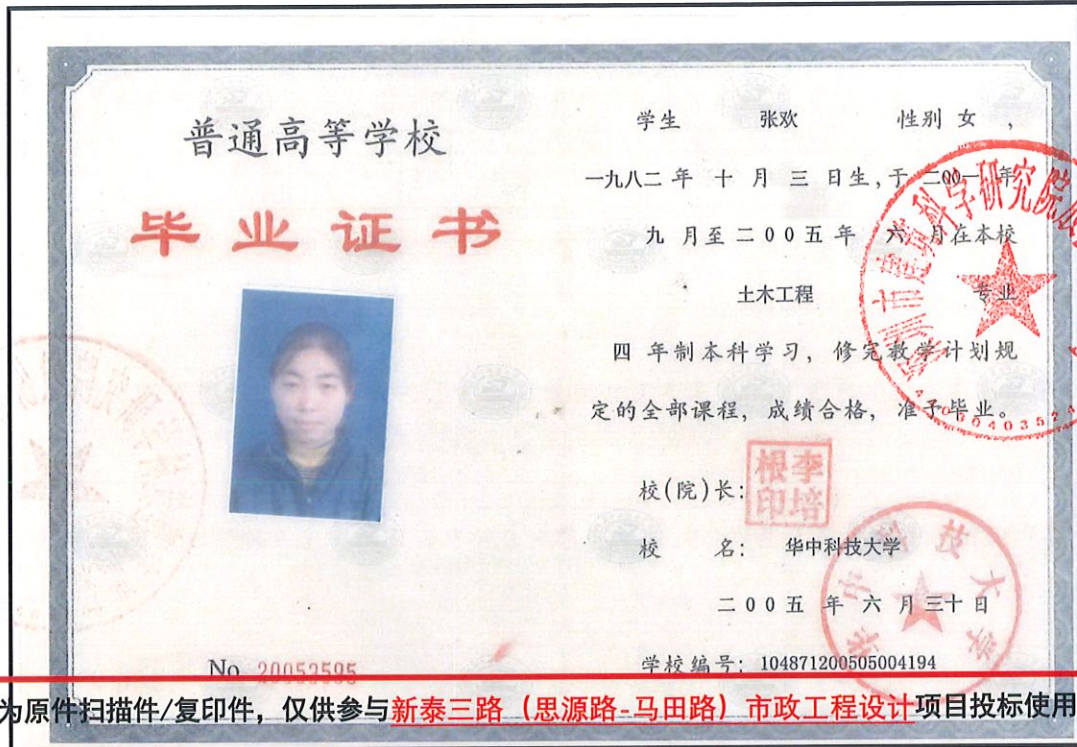 普通高等学校
毕业证书
No 20052595
学生 张欢 性别 女 ,
一九八二 年 十 月 三 日生,于 二00一 年
九 月至 二00五 年 六 月在本校
土木工程 专业
四 年制本科学习, 修完教学计划规
定的全部课程, 成绩合格, 准予毕业。
校(院)长:
李培根印
校 名: 华中科技大学
二00五 年 六 月 三十 日
学校编号: 104871200505004194
华中科技大学
圳市建筑科学研究院
为原件扫描件/复印件, 仅供参与新泰三路 (思源路-马田路) 市政工程设计项目投标使用